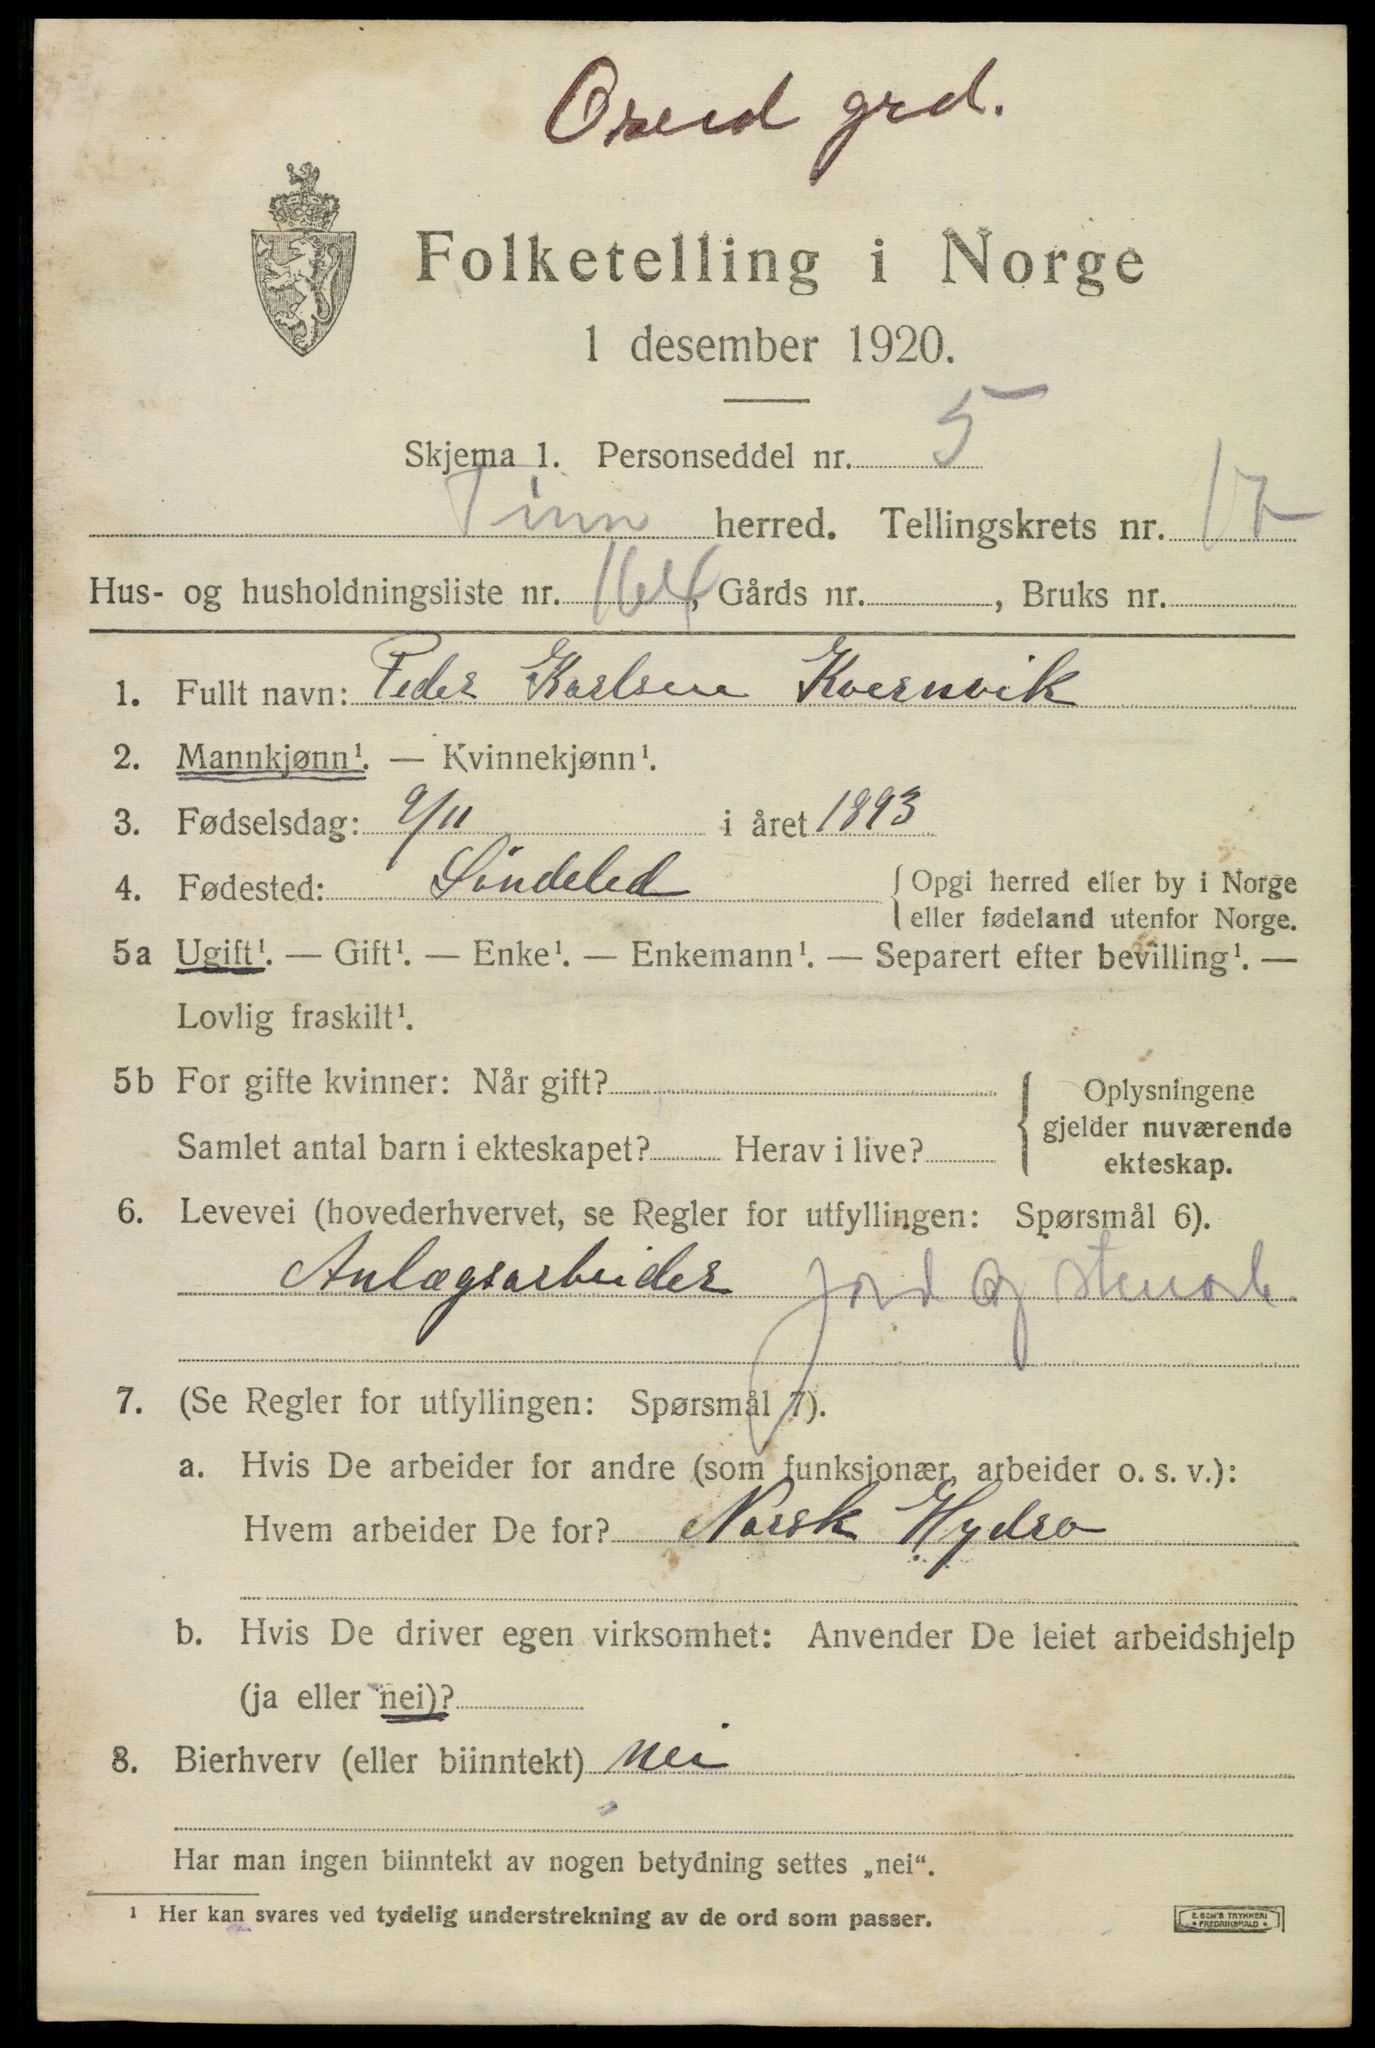 grd.
Folketelling i Norge
1 desember 1920.
Skjema 1. Personseddel nr. 5
Tinn herred. Tellingskrets nr. 17
Hus- og husholdningsliste nr. 164, Gårds nr. , Bruks nr.
1. Fullt navn: Peder Karlsen Kvernvik
2. Mannkjønn¹. — Kvinnekjønn¹.
3. Fødselsdag: 9/11 i året 1893
4. Fødested: Søndeled { Opgi herred eller by i Norge
eller fødeland utenfor Norge.
5a Ugift¹. — Gift¹. — Enke¹. — Enkemann¹. — Separert efter bevilling¹. —
Lovlig fraskilt¹.
5b For gifte kvinner: Når gift?
Samlet antal barn i ekteskapet? Herav i live?
{ Oplysningene
gjelder nuværende
ekteskap.
6. Levevei (hovederhvervet, se Regler for utfyllingen: Spørsmål 6).
Anlægsarbeider jord og stenarb.
7. (Se Regler for utfyllingen: Spørsmål 7).
a. Hvis De arbeider for andre (som funksjonær, arbeider o. s. v.):
Hvem arbeider De for? Norsk Hydro
b. Hvis De driver egen virksomhet: Anvender De leiet arbeidshjelp
(ja eller nei)?
8. Bierhverv (eller biinntekt) nei
Har man ingen biinntekt av nogen betydning settes „nei“.
¹ Her kan svares ved tydelig understrekning av de ord som passer.
E. SEM'S TRYKKERI
FREDRIKSHALD